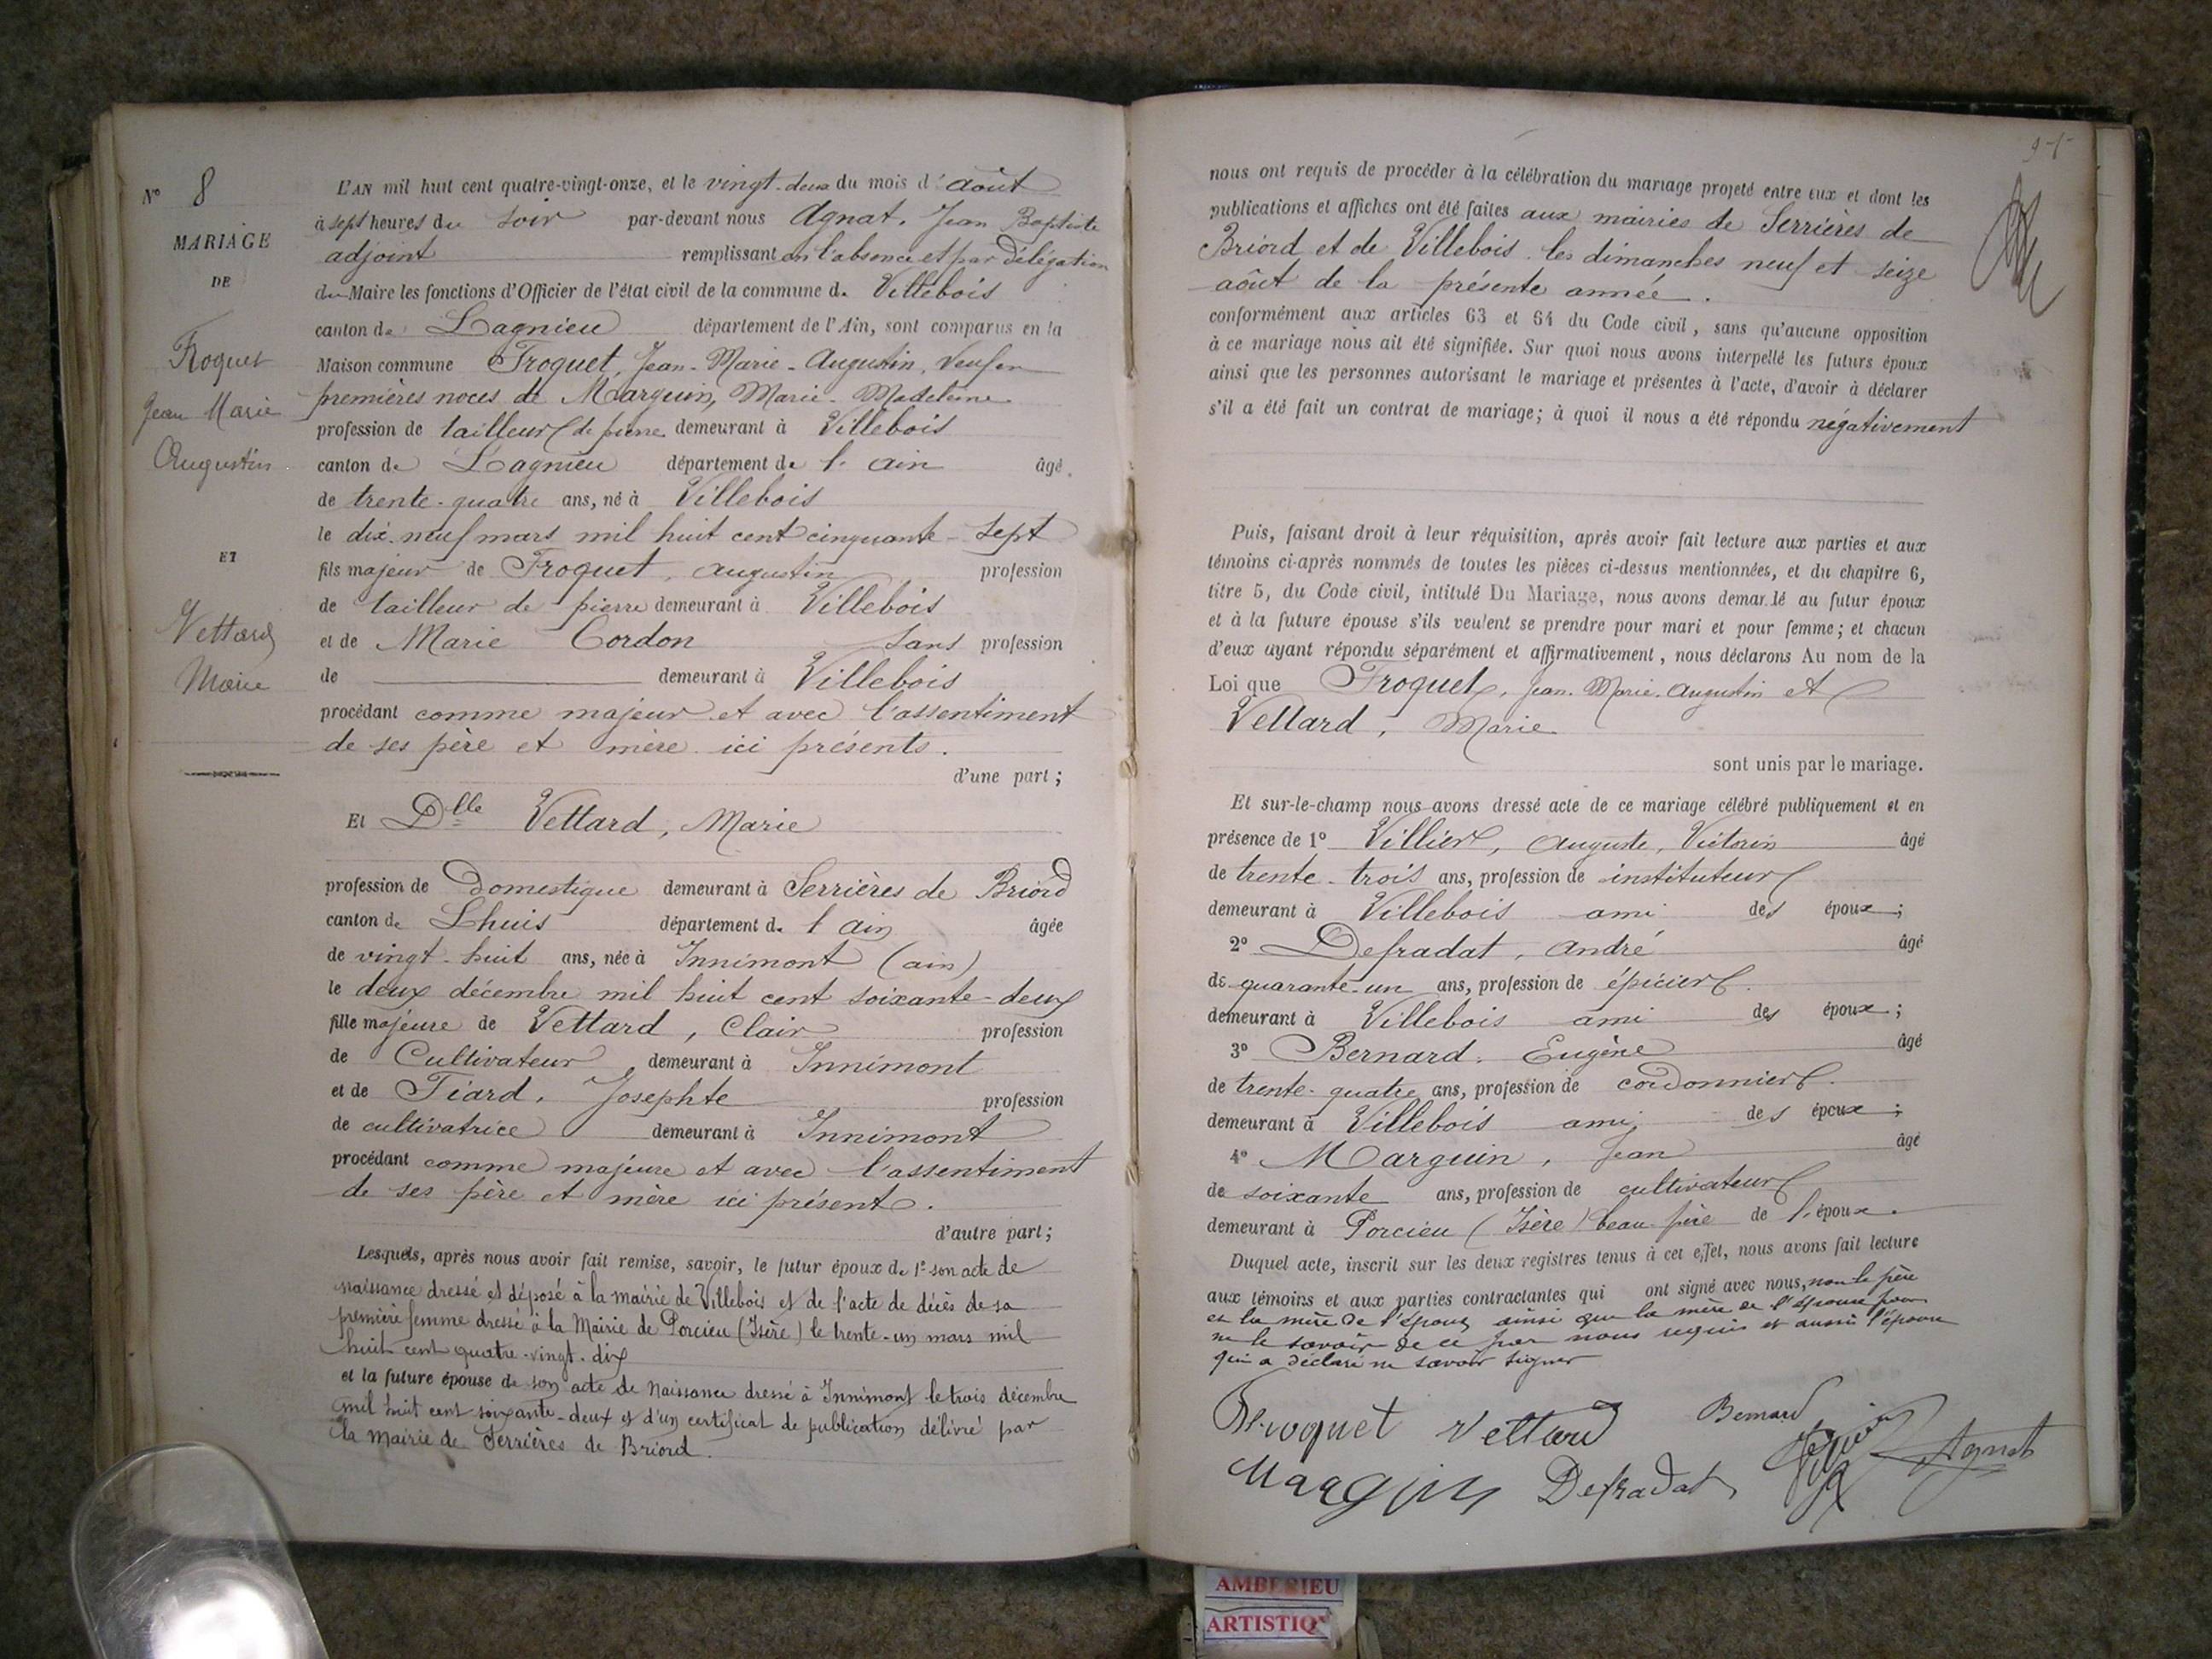 N° 8
MARIAGE
DE
Froquet
Jean Marie
Augustin
ET
Vettard
Marie
L'AN mil huit cent quatre-vingt-onze, et le vingt-deux du mois d'août
à sept heures du soir par-devant nous Agnat, Jean Baptiste
adjoint remplissant en l'absence et par délégation
du Maire les fonctions d'Officier de l'état civil de la commune de Villebois
canton de Lagnieu département de l'Ain, sont comparus en la
Maison commune Froquet, Jean-Marie-Augustin, Veuf en
premières noces de Marguin, Marie-Madeleine
profession de tailleur de pierre demeurant à Villebois
canton de Lagnieu département de l'ain âgé
de trente-quatre ans, né à Villebois
le dix-neuf mars mil huit cent cinquante-sept
fils majeur de Froquet, augustin profession
de tailleur de pierre demeurant à Villebois
et de Marie Cordon sans profession
de demeurant à Villebois
procédant comme majeur et avec l'assentiment
de ses père et mère ici présents.
d'une part;
Et Dlle Vettard, Marie
profession de Domestique demeurant à Serrières de Briord
canton de Lhuis département de l'ain âgée
de vingt-huit ans, née à Innimont (ain)
le deux décembre mil huit cent soixante-deux
fille majeure de Vettard, Clair profession
de Cultivateur demeurant à Innimont
et de Tiard, Josephte profession
de cultivatrice demeurant à Innimont
procédant comme majeure et avec l'assentiment
de ses père et mère ici présents.
d'autre part;
Lesquels, après nous avoir fait remise, savoir, le futur époux de 1° son acte de
naissance dressé et déposé à la mairie de Villebois et de l'acte de décès de sa
première femme dressé à la Mairie de Porcieu (Isère) le trente-un mars mil
huit cent quatre-vingt-dix
et la future épouse de son acte de naissance dressé à Innimont le trois décembre
mil huit cent soixante-deux et d'un certificat de publication délivré par
la mairie de Serrières de Briord.
nous ont requis de procéder à la célébration du mariage projeté entre eux et dont les
publications et affiches ont été faites aux mairies de Serrières de
Briord et de Villebois les dimanches neuf et seize
août de la présente année.
conformément aux articles 63 et 64 du Code civil, sans qu'aucune opposition
à ce mariage nous ait été signifiée. Sur quoi nous avons interpellé les futurs époux
ainsi que les personnes autorisant le mariage et présentes à l'acte, d'avoir à déclarer
s'il a été fait un contrat de mariage; à quoi il nous a été répondu négativement
Puis, faisant droit à leur réquisition, après avoir fait lecture aux parties et aux
témoins ci-après nommés de toutes les pièces ci-dessus mentionnées, et du chapitre 6,
titre 5, du Code civil, intitulé Du Mariage, nous avons demandé au futur époux
et à la future épouse s'ils veulent se prendre pour mari et pour femme; et chacun
d'eux ayant répondu séparément et affirmativement, nous déclarons Au nom de la
Loi que Froquet, Jean-Marie-Augustin et
Vettard, Marie
sont unis par le mariage.
Et sur-le-champ nous avons dressé acte de ce mariage célébré publiquement et en
présence de 1° Villier, Auguste, Victorin âgé
de trente-trois ans, profession de instituteur
demeurant à Villebois ami des époux;
2° Defradat, André âgé
de quarante-un ans, profession de épicier
demeurant à Villebois ami des époux;
3° Bernard, Eugène âgé
de trente-quatre ans, profession de cordonnier
demeurant à Villebois ami des époux;
4° Marguin, Jean âgé
de soixante ans, profession de cultivateur
demeurant à Porcieu (Isère) beau-père de l'époux.
Duquel acte, inscrit sur les deux registres tenus à cet effet, nous avons fait lecture
aux témoins et aux parties contractantes qui ont signé avec nous, non le père
et la mère de l'époux ainsi que la mère de l'épouse pour
ne le savoir de ce par nous requis et aussi l'épouse
qui a déclaré ne savoir signer
Froquet Vettard Bernard
Marguin Defradat Agnat
AMBERIEU
ARTISTIQ